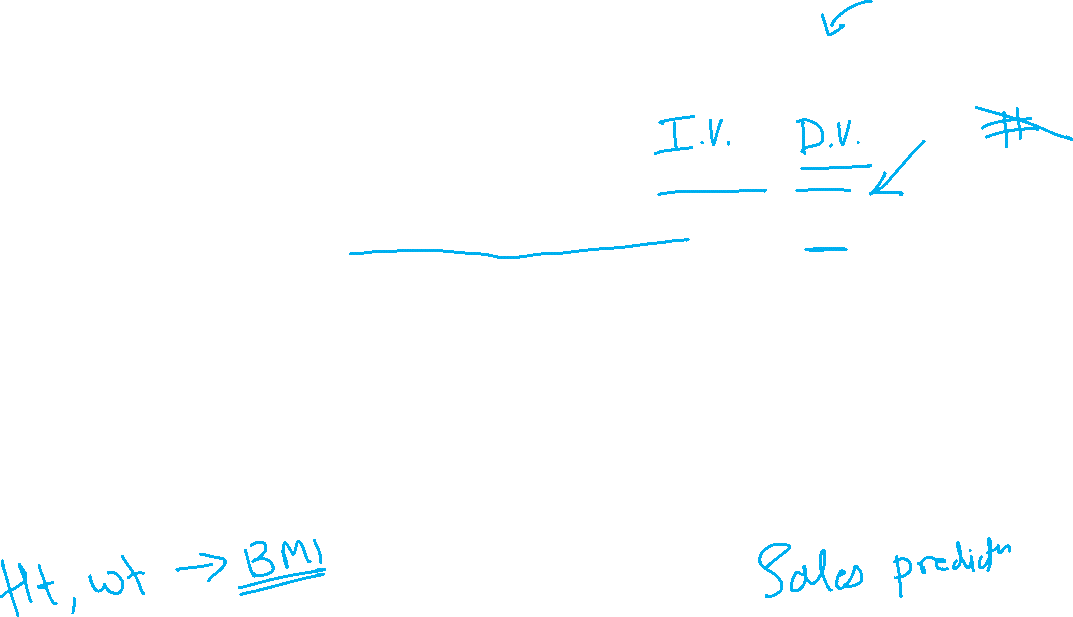 I.V. D.V.
Ht, wt → BMI
Sales predictn